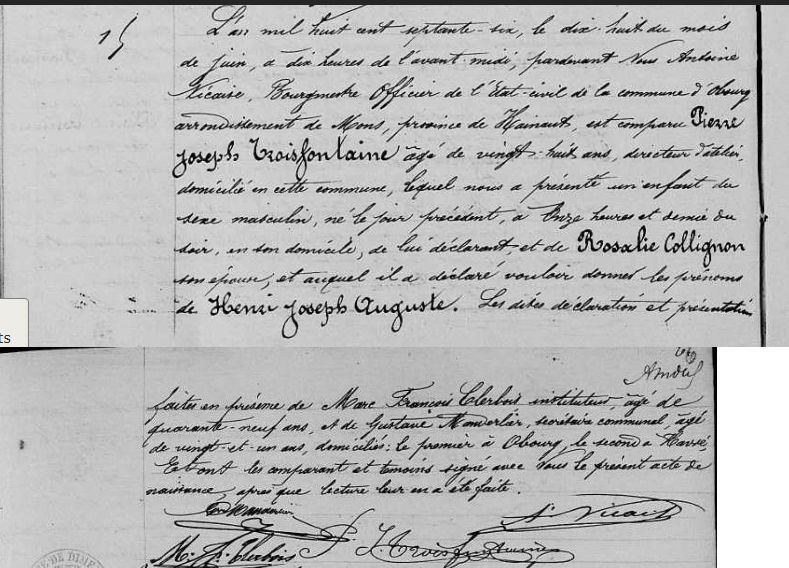 15
L'an mil huit cent septante-six, le dix-huit du mois
de juin, à dix heures de l'avant-midi, pardevant Nous Antoine
Nicaise, Bourgmestre Officier de l'Etat-civil de la commune d'Obourg
arrondissement de Mons, province de Hainaut, est comparu Pierre
Joseph Troisfontaine âgé de vingt-huit ans, directeur d'atelier,
domicilié en cette commune, lequel nous a présenté un enfant du
sexe masculin, né le jour précédent, à Onze heures et demie du
soir, en son domicile, de lui déclarant, et de Rosalie Collignon
son épouse, et auquel il a déclaré vouloir donner les prénoms
de Henri Joseph Auguste. Les dites déclaration et présentation
ts
faites en présence de Marc François Clerbois instituteur, âgé de
quarante-neuf ans, et de Gustave, secrétaire communal, âgé
de vingt-et-un ans, domiciliés: le premier à Obourg, le second à Havré,
Et ont les comparant et témoins signé avec Nous le présent acte de
naissance, après que lecture leur en a été faite.
A. Nicaise
M. F. Clerbois P. J. Troisfontaine